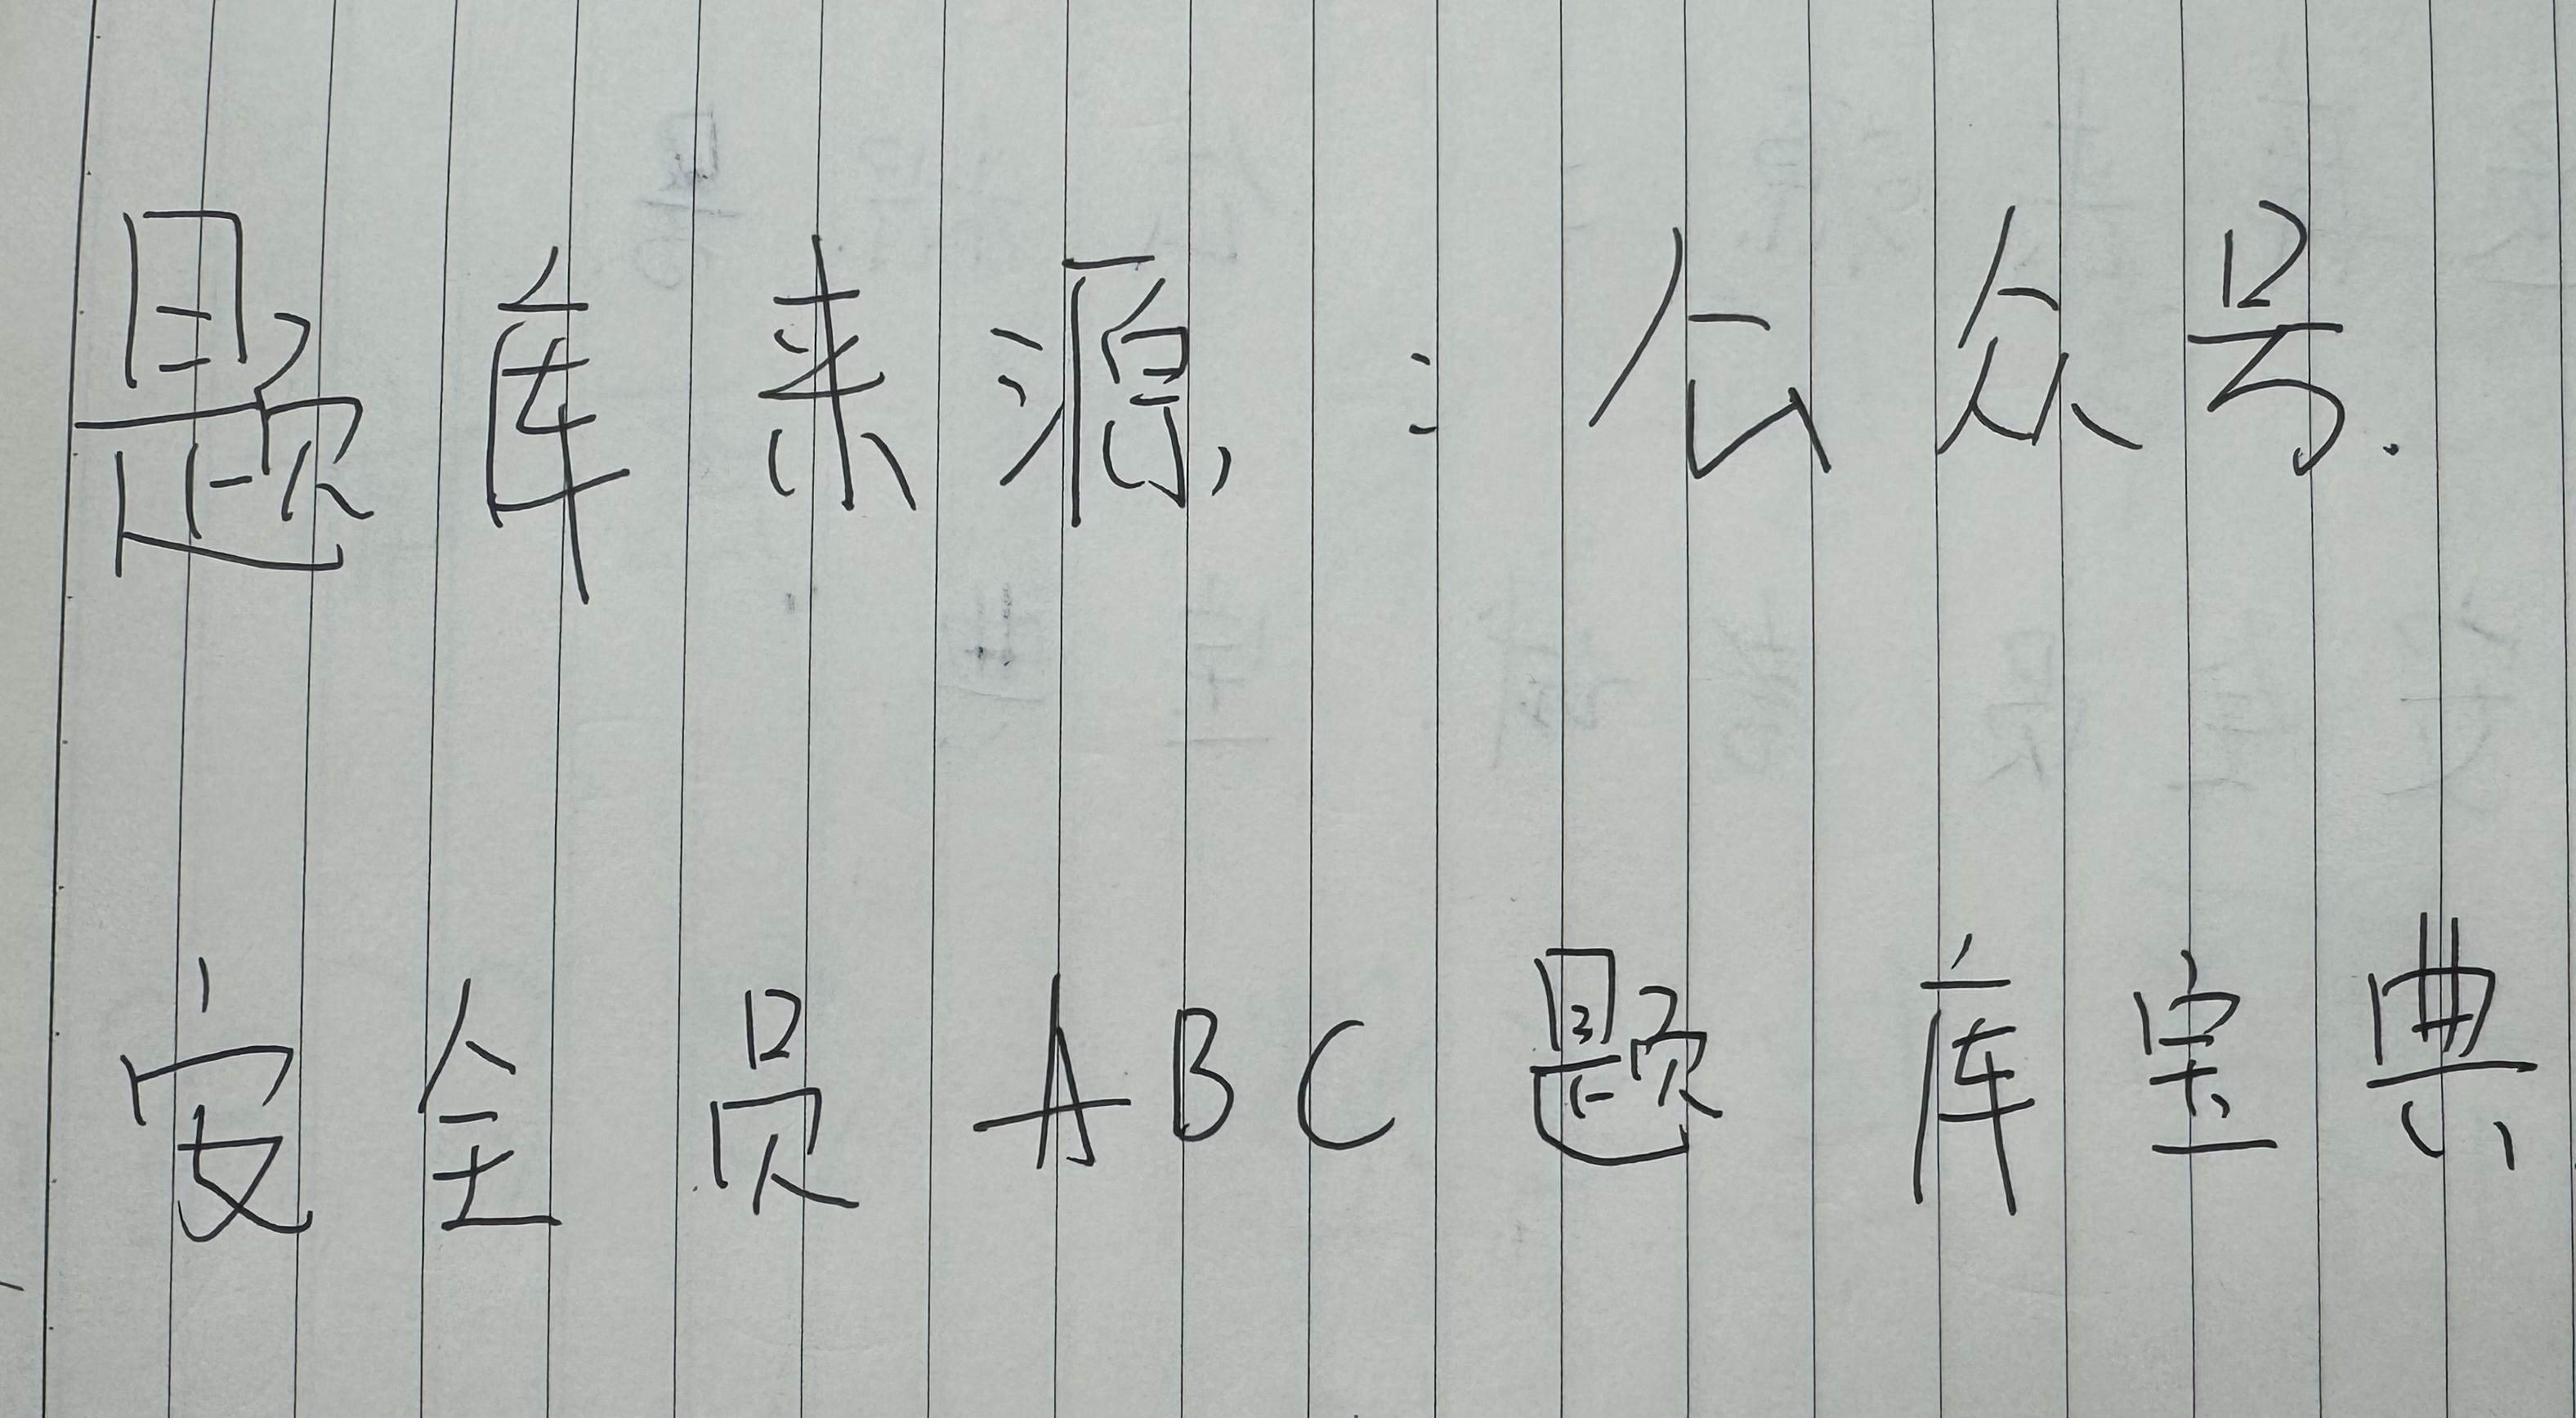 题库来源：公众号.
安全员ABC题库宝典